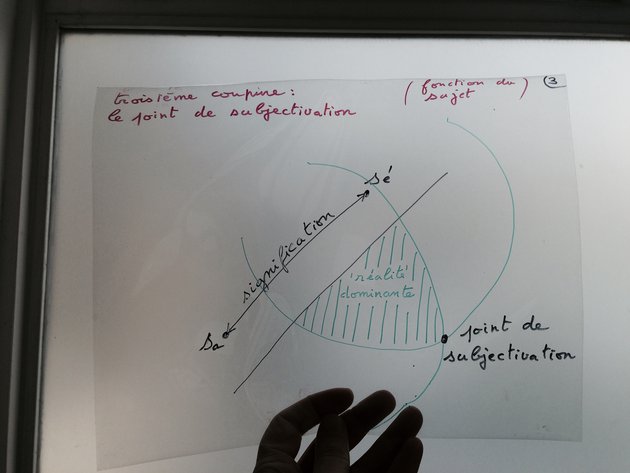 troisième coupure :
le point de subjectivation
(fonction du
sujet)
3
sé
signification
sa
"réalité"
dominante
point de
subjectivation